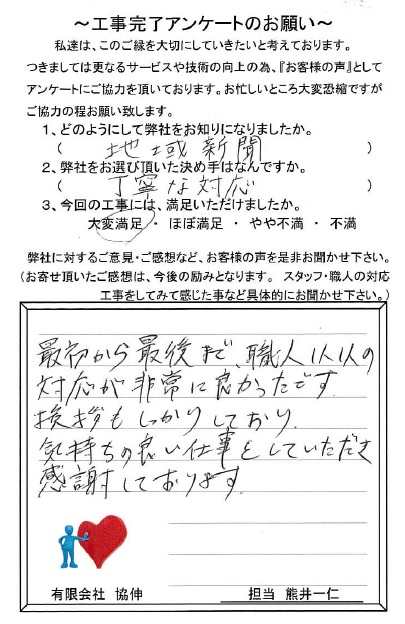 ～工事完了アンケートのお願い～
私達は、このご縁を大切にしていきたいと考えております。
つきましては更なるサービスや技術の向上の為、『お客様の声』として
アンケートにご協力を頂いております。お忙しいところ大変恐縮ですが
ご協力の程お願い致します。
1、どのようにして弊社をお知りになりましたか。
( 地域新聞 )
2、弊社をお選び頂いた決め手はなんですか。
( 丁寧な対応 )
3、今回の工事には、満足いただけましたか。
大変満足 ・ ほぼ満足 ・ やや不満 ・ 不満
弊社に対するご意見・ご感想など、お客様の声を是非お聞かせ下さい。
(お寄せ頂いたご感想は、今後の励みとなります。 スタッフ・職人の対応
工事をしてみて感じた事など具体的にお聞かせ下さい。)
最初から最後まで、職人1人1人の
対応が非常に良かったです
挨拶もしっかりしており、
気持ちの良い仕事をしていただき
感謝しております。
有限会社 協伸
担当 熊井一仁